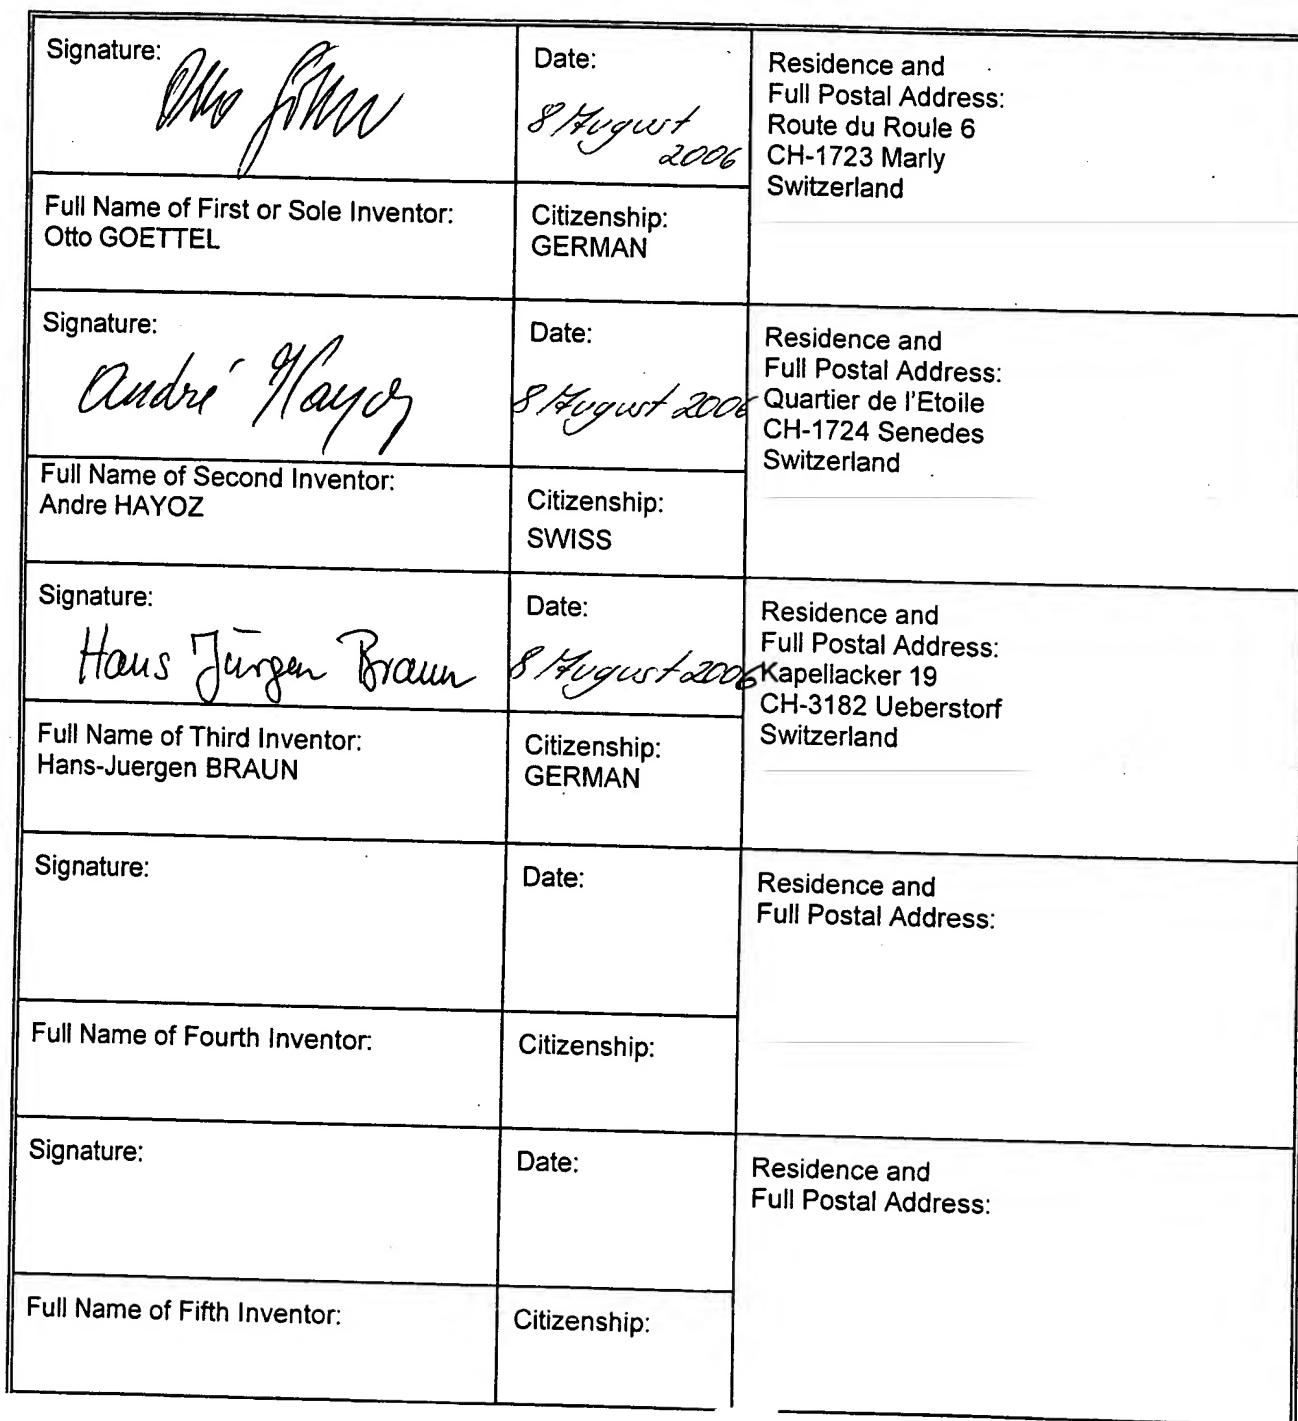 Signature:
Otto Göttel
Date:
8 August
2006
Residence and
Full Postal Address:
Route du Roule 6
CH-1723 Marly
Switzerland
Full Name of First or Sole Inventor:
Otto GOETTEL
Citizenship:
GERMAN
Signature:
André Hayoz
Date:
8 August 2006
Residence and
Full Postal Address:
Quartier de l'Etoile
CH-1724 Senedes
Switzerland
Full Name of Second Inventor:
Andre HAYOZ
Citizenship:
SWISS
Signature:
Hans Jürgen Braun
Date:
8 August 2006
Residence and
Full Postal Address:
Kapellacker 19
CH-3182 Ueberstorf
Switzerland
Full Name of Third Inventor:
Hans-Juergen BRAUN
Citizenship:
GERMAN
Signature:
Date:
Residence and
Full Postal Address:
Full Name of Fourth Inventor:
Citizenship:
Signature:
Date:
Residence and
Full Postal Address:
Full Name of Fifth Inventor:
Citizenship: